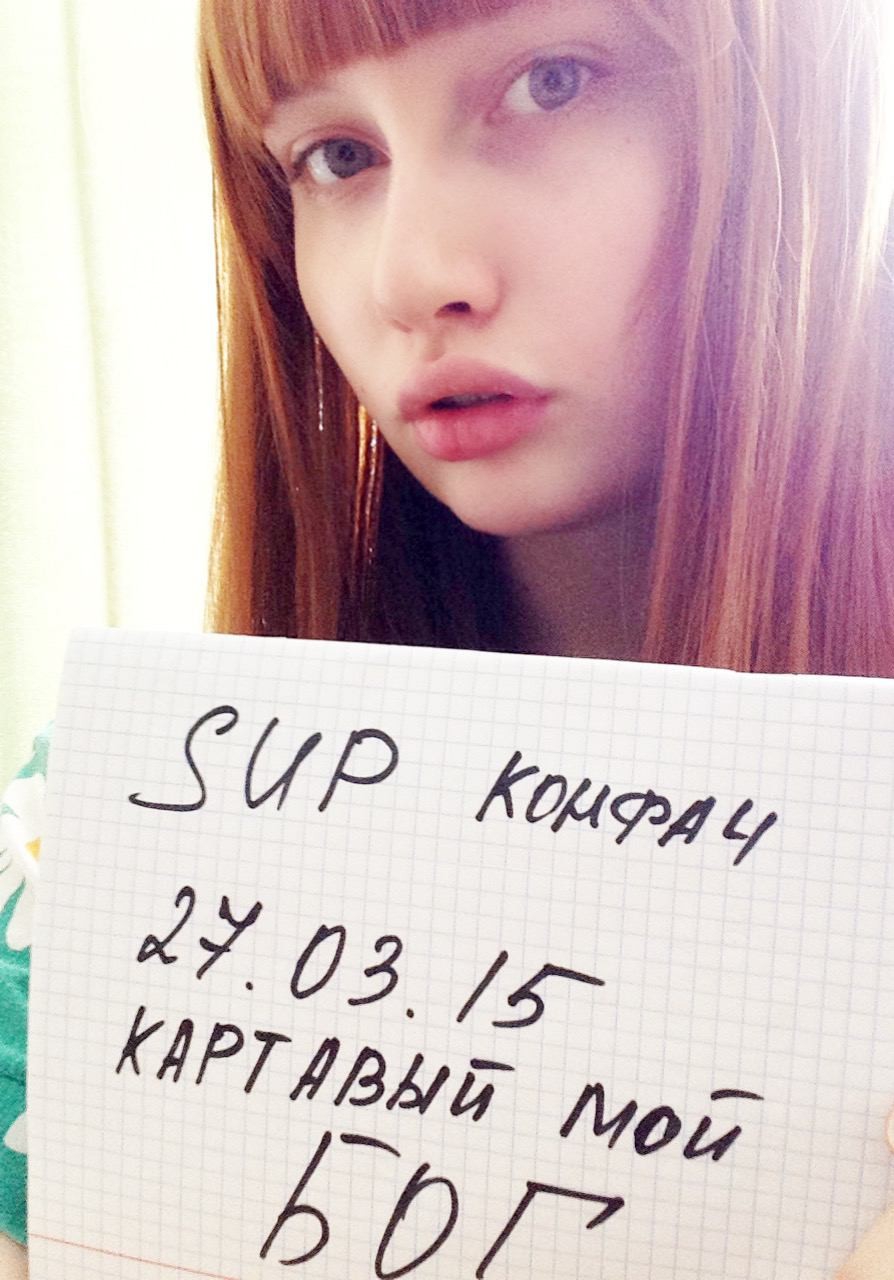 SUP КОНФАЧ
27.03.15
КАРТАВЫЙ МОЙ
БОГ